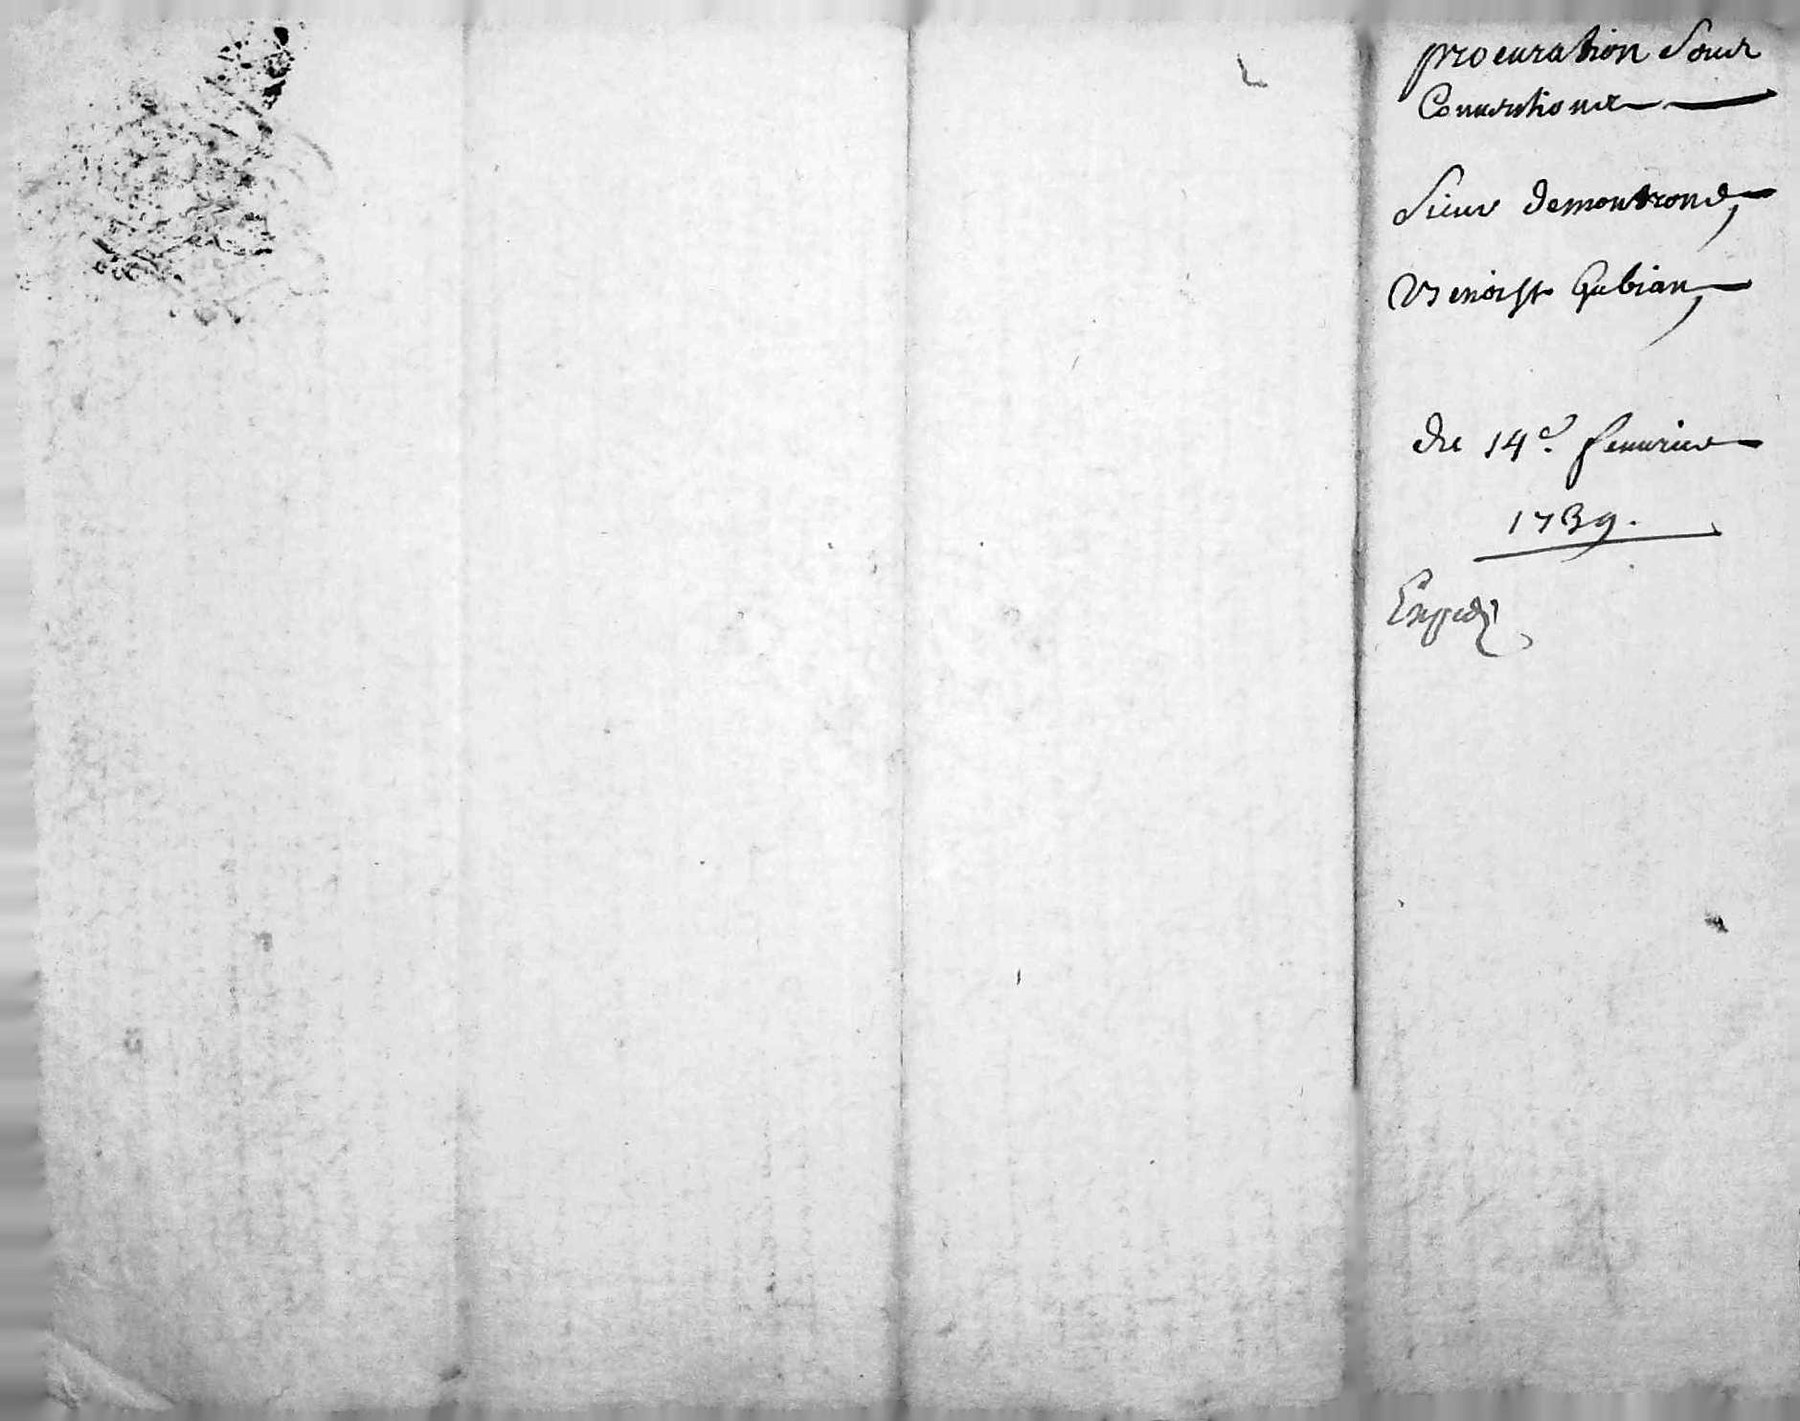 procuration Sous
Conventions
Sieur demontrond,
Benoist Gubian,
du 14e. feuurier
1739.
Expedi